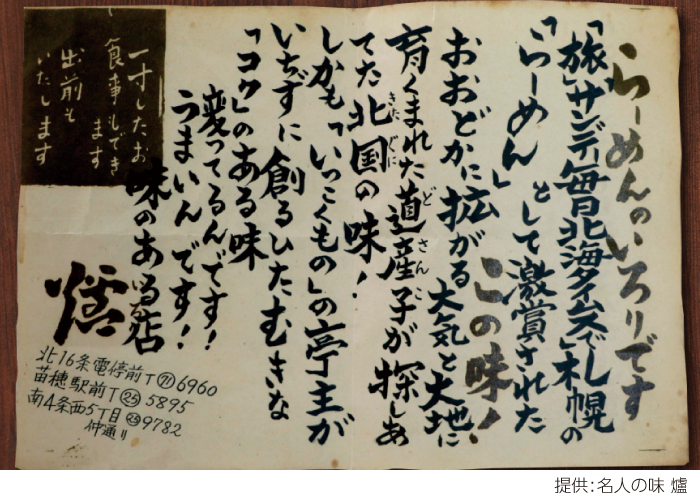 らーめんのいろりです
「旅」サンデー毎日北海タイムスでし札幌の
「らーめん」として激賞された
この味！
おおどかに拡がる大気と大地に
育くまれた道産子が探しあ
てた北国の味！
しかも「いっこくもの」の亭主が
いちずに創るひたむきな
「コク」のある味
変ってるんです！
うまいんです！
味のある店
爐
一寸したお
食事もできます
出前も
いたします
北16条電停前T㉑6960
苗穂駅前T㉕5895
南4条西5丁目㉕9782
仲通り
提供：名人の味 爐